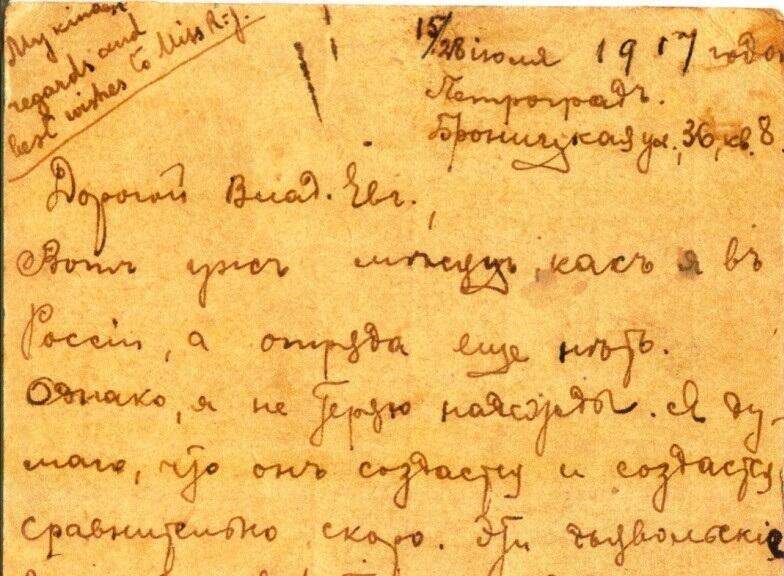 My kindest
regards and
best wishes to Miss R-g.
15/28 іюля 1917 года
Петроградъ.
Броницкая ул., 36, кв. 8.
Дорогой Влад. Евг.,
Вотъ ужъ мѣсяцъ, какъ я въ
Россіи, а отряда еще нѣтъ.
Однако, я не теряю надежды. Я ду-
маю, что онъ создастся и создастся
сравнительно скоро. Эти дьявольскіе